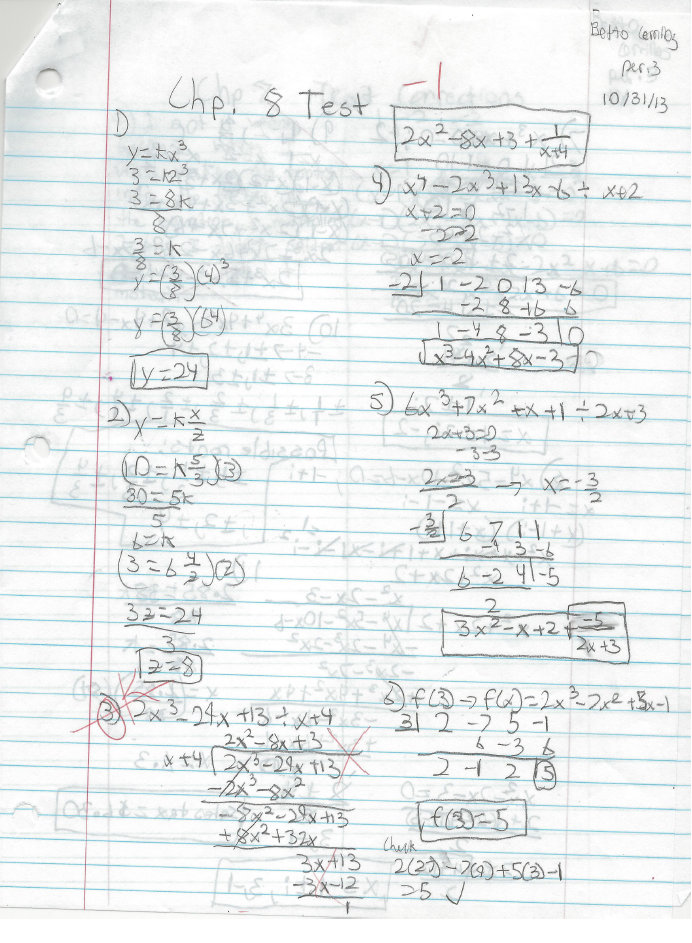 per.3
10/31/13
-1
Chp. 8 Test
1)
y=kx³
3=k2³
3=8k
8
3/8=k
y=(3/8)(4)³
y=(3/8)(64)
y=24
2) y=k x/z
(10=k 5/3)(3)
30=5k
5
6=k
(3=6 4/z)(z)
3z=24
3
z=8
3) 2x³-24x+13÷x+4
2x²-8x+3
x+4 2x³-24x+13
-2x³-8x²
-8x²-24x+13
+8x²+32x
3x+13
-3x-12
1
2x²-8x+3+1/(x+4)
4) x⁴-2x³+13x-6÷ x+2
x+2=0
-2-2
x=-2
-2| 1 -2 0 13 -6
-2 8 -16 6
1 -4 8 -3 |0
x³-4x²+8x-3
5) 6x³+7x²+x+1÷2x+3
2x+3=0
-3-3
2x=-3 → x=-3/2
2
-3/2| 6 7 1 1
-9 3 -6
6 -2 4|-5
2
3x²-x+2+ -5/(2x+3)
6) f(3)→f(x)=2x³-7x²+5x-1
3| 2 -7 5 -1
6 -3 6
2 -1 2 |5
f(3)=5
Check
2(27)-7(9)+5(3)-1
=5 ✓